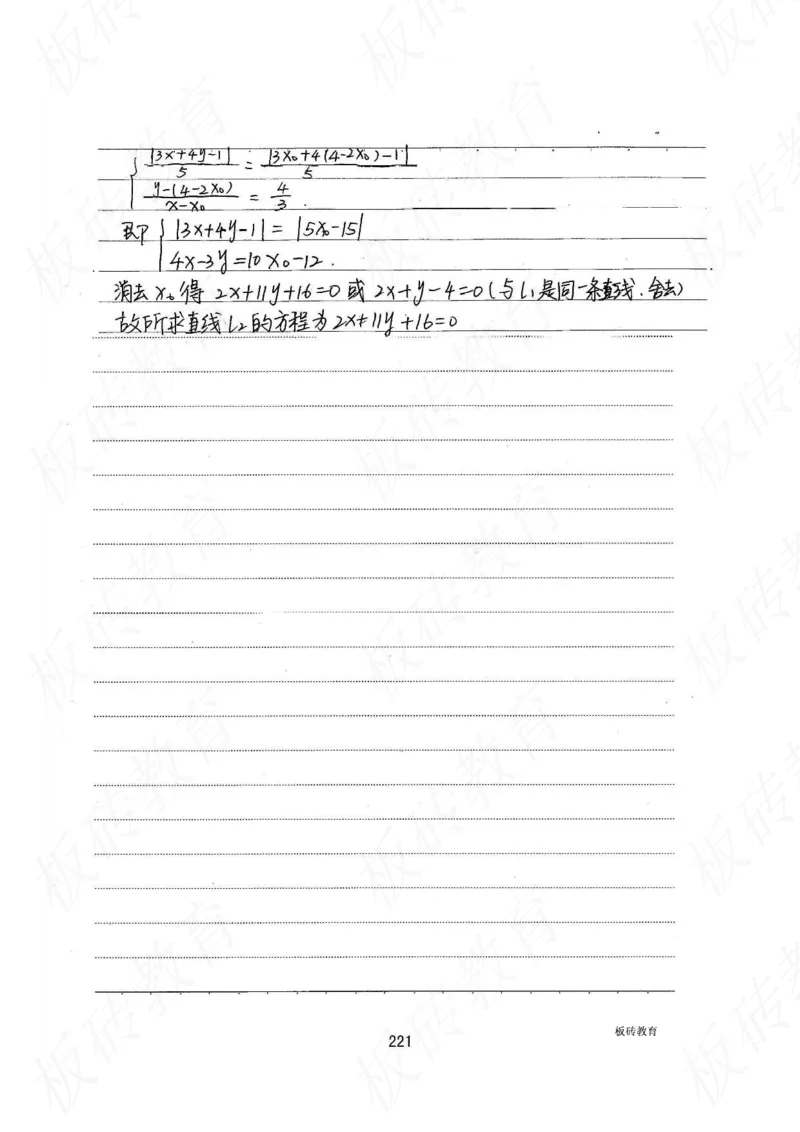 { |3x+4y-1|/5 = |3x₀+4(4-2x₀)-1|/5
y-(4-2x₀)/x-x₀ = 4/3.
即 { |3x+4y-1| = |5x₀-15|
4x-3y=10x₀-12.
消去x₀得 2x+11y+16=0或 2x+y-4=0(与l₁是同一条直线.舍去)
故所求直线l₂的方程为2x+11y+16=0
板砖教育
221